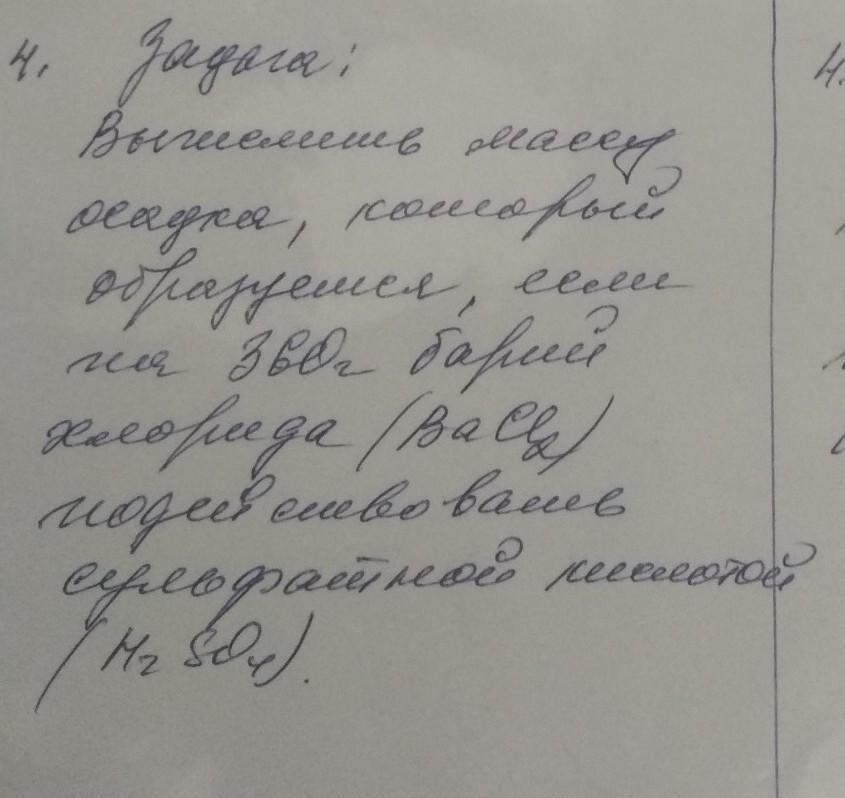 4. Задача:
Вычислить массу
осадка, который
образуется, если
на 360г барий
хлорида (BaCl₂)
подействовать
сульфатной кислотой
(H₂SO₄).
4.